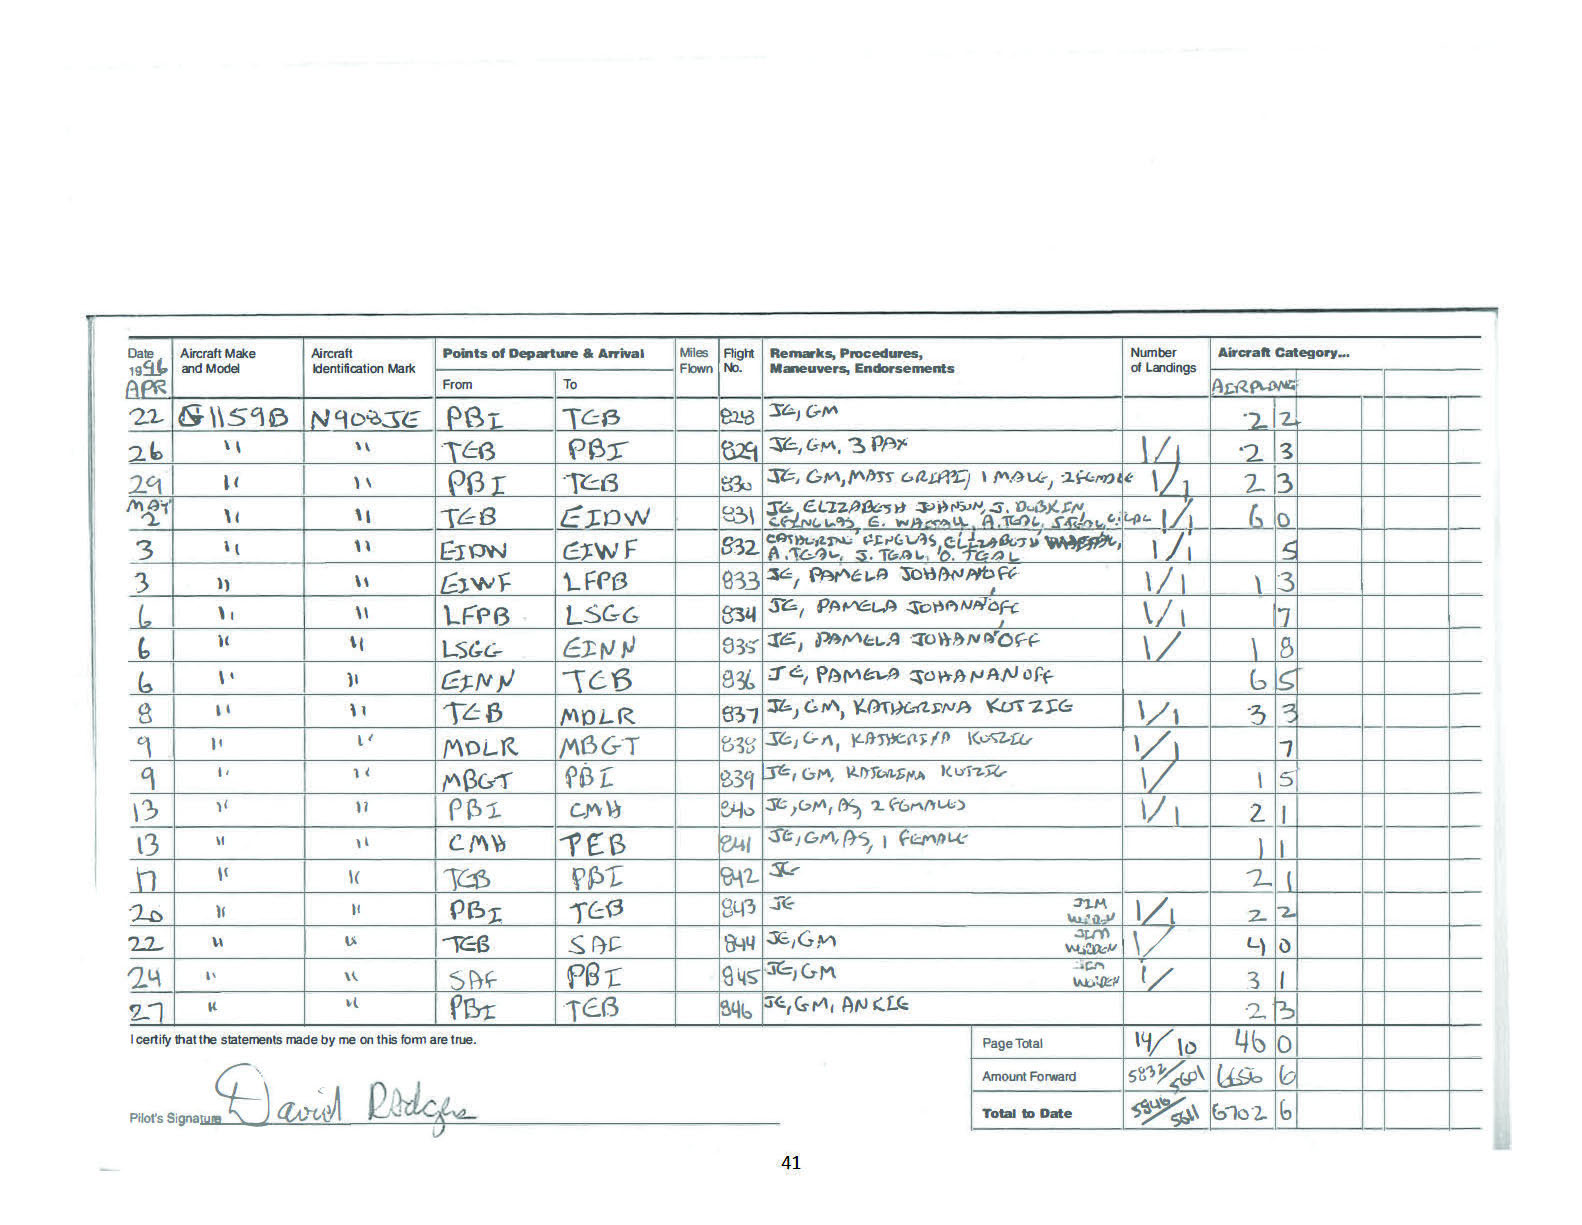 Date Aircraft Make Aircraft Points of Departure & Arrival Miles Flight Remarks, Procedures, Number Aircraft Category...
1996 and Model Identification Mark From To Flown No. Maneuvers, Endorsements of Landings
APR AIRPLANE
22 G1159B N908JE PBI TEB 828 JE, GM 2 2
26 " " TEB PBI 829 JE, GM, 3 PAX 1/1 2 3
29 " " PBI TEB 830 JE, GM, 1 MALE, 2 FEMALE 1/1 2 3
MAY JE, ELIZABETH JOHNSON, J. DUBKIN
2 " " TEB EIDW 831 E. A. TEAL, 1/1 6 0
3 " " EIDW EIWF 832 1/1 5
A. TEAL, J. TEAL, O. TEAL
3 " " EIWF LFPB 833 JE, PAMELA JOHANANOFF 1/1 1 3
6 " " LFPB LSGG 834 JE, PAMELA JOHANANOFF 1/1 7
6 " " LSGG EINN 835 JE, PAMELA JOHANANOFF 1/ 1 8
6 " " EINN TEB 836 JE, PAMELA JOHANANOFF 6 5
8 " " TEB MDLR 837 JE, GM, KATHERINA KOTZIG 1/1 3 3
9 " " MDLR MBGT 838 JE, GM, KATHERINA KOTZIG 1/1 7
9 " " MBGT PBI 839 JE, GM, KATERINA KOTZIG 1/ 1 5
13 " " PBI CMH 840 JE, GM, AS, 2 FEMALES 1/1 2 1
13 " " CMH TEB 841 JE, GM, AS, 1 FEMALE 1 1
17 " " TEB PBI 842 JE 2 1
20 " " PBI TEB 843 JE JIM WEIDEN 1/1 2 2
22 " " TEB SAF 844 JE, GM JIM WEIDEN 1/ 4 0
24 " " SAF PBI 845 JE, GM JIM WEIDEN 1/ 3 1
27 " " PBI TEB 846 JE, GM, ANKIE 2 3
I certify that the statements made by me on this form are true. Page Total 14/10 46 0
Amount Forward 5832/5601 6656 6
Pilot's Signature David Rodgers Total to Date 5846/5611 6702 6
41